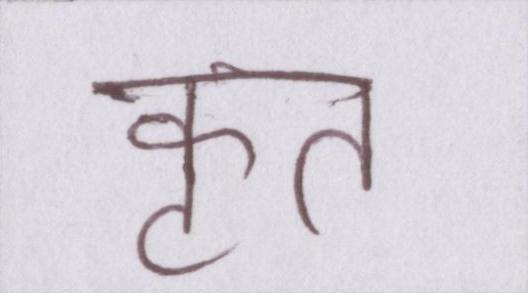 कृत